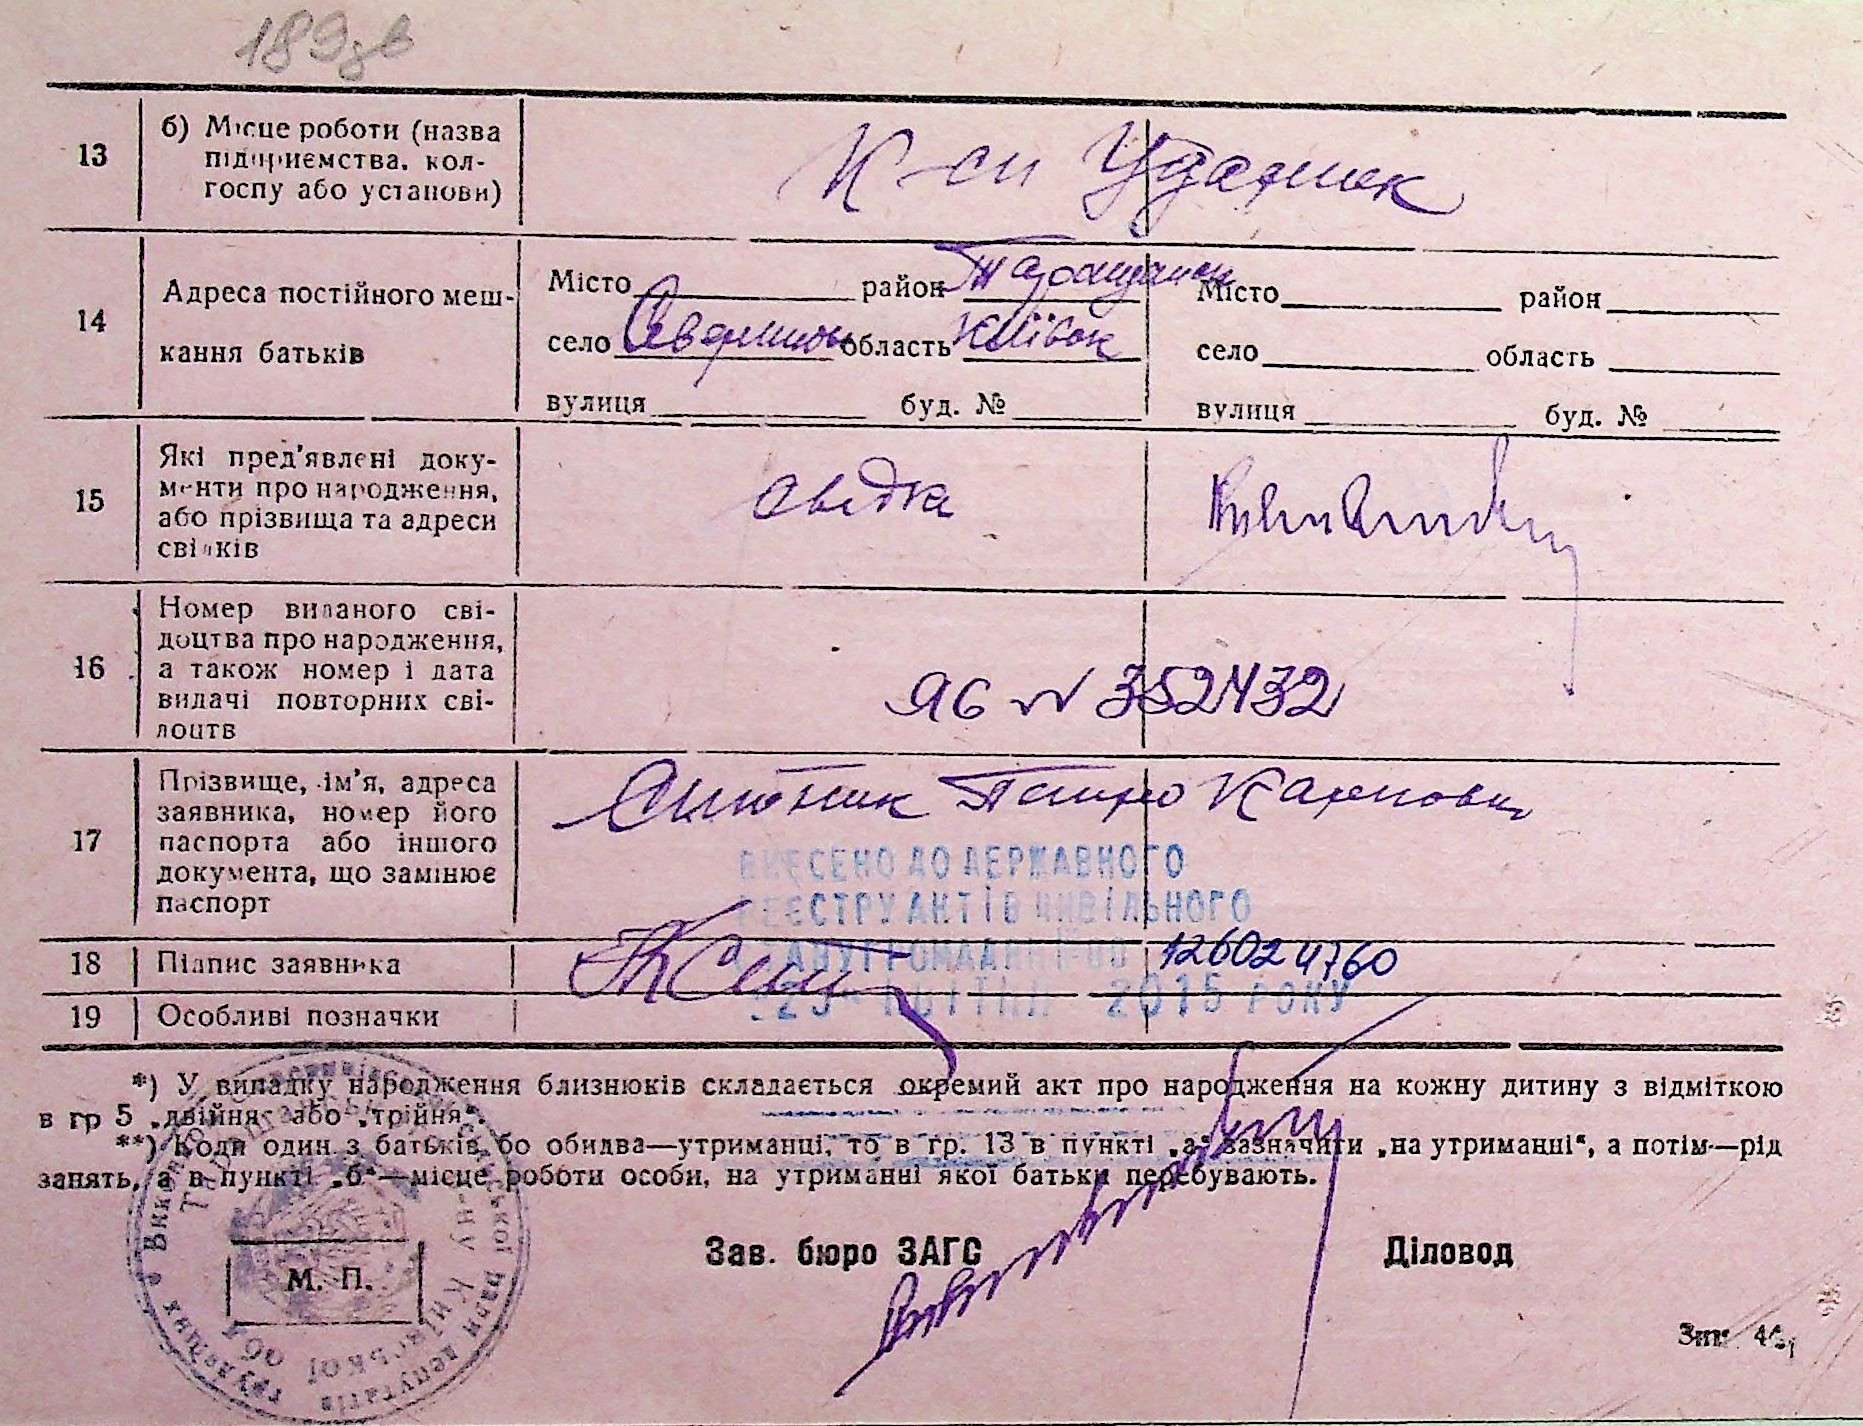 189зв
13 б) Місце роботи (назва
підприємства, кол-
госпу або установи)
К-сп Ударник
14 Адреса постійного меш-
кання батьків
Місто район Таращанск
село область Київск
вулиця буд. №
Місто район
село область
вулиця буд. №
15 Які пред'явлені доку-
менти про народження,
або прізвища та адреси
свідків
свідка
16 Номер виданого сві-
доцтва про народження,
а також номер і дата
видачі повторних сві-
доцтв
ЯБ № 352432
17 Прізвище, ім'я, адреса
заявника, номер його
паспорта або іншого
документа, що замінює
паспорт
Ситник Петро Карпович
ВНЕСЕНО ДО ДЕРЖАВНОГО
РЕЄСТРУ АКТІВ ЦИВІЛЬНОГО
СТАНУ ГРОМАДЯН 126024760
"23" КВІТНЯ 2015 РОКУ
18 Підпис заявника
19 Особливі позначки
*) У випадку народження близнюків складається окремий акт про народження на кожну дитину з відміткою
в гр 5 „двійня“ або „трійня“.
**) Коли один з батьків бо обидва—утриманці, то в гр. 13 в пункті „а“ зазначити „на утриманні“, а потім—рід
занять, а в пункті „б“—місце роботи особи, на утриманні якої батьки перебувають.
Зав. бюро ЗАГС
Діловод
М. П.
Київської обл
депутатів трудящих